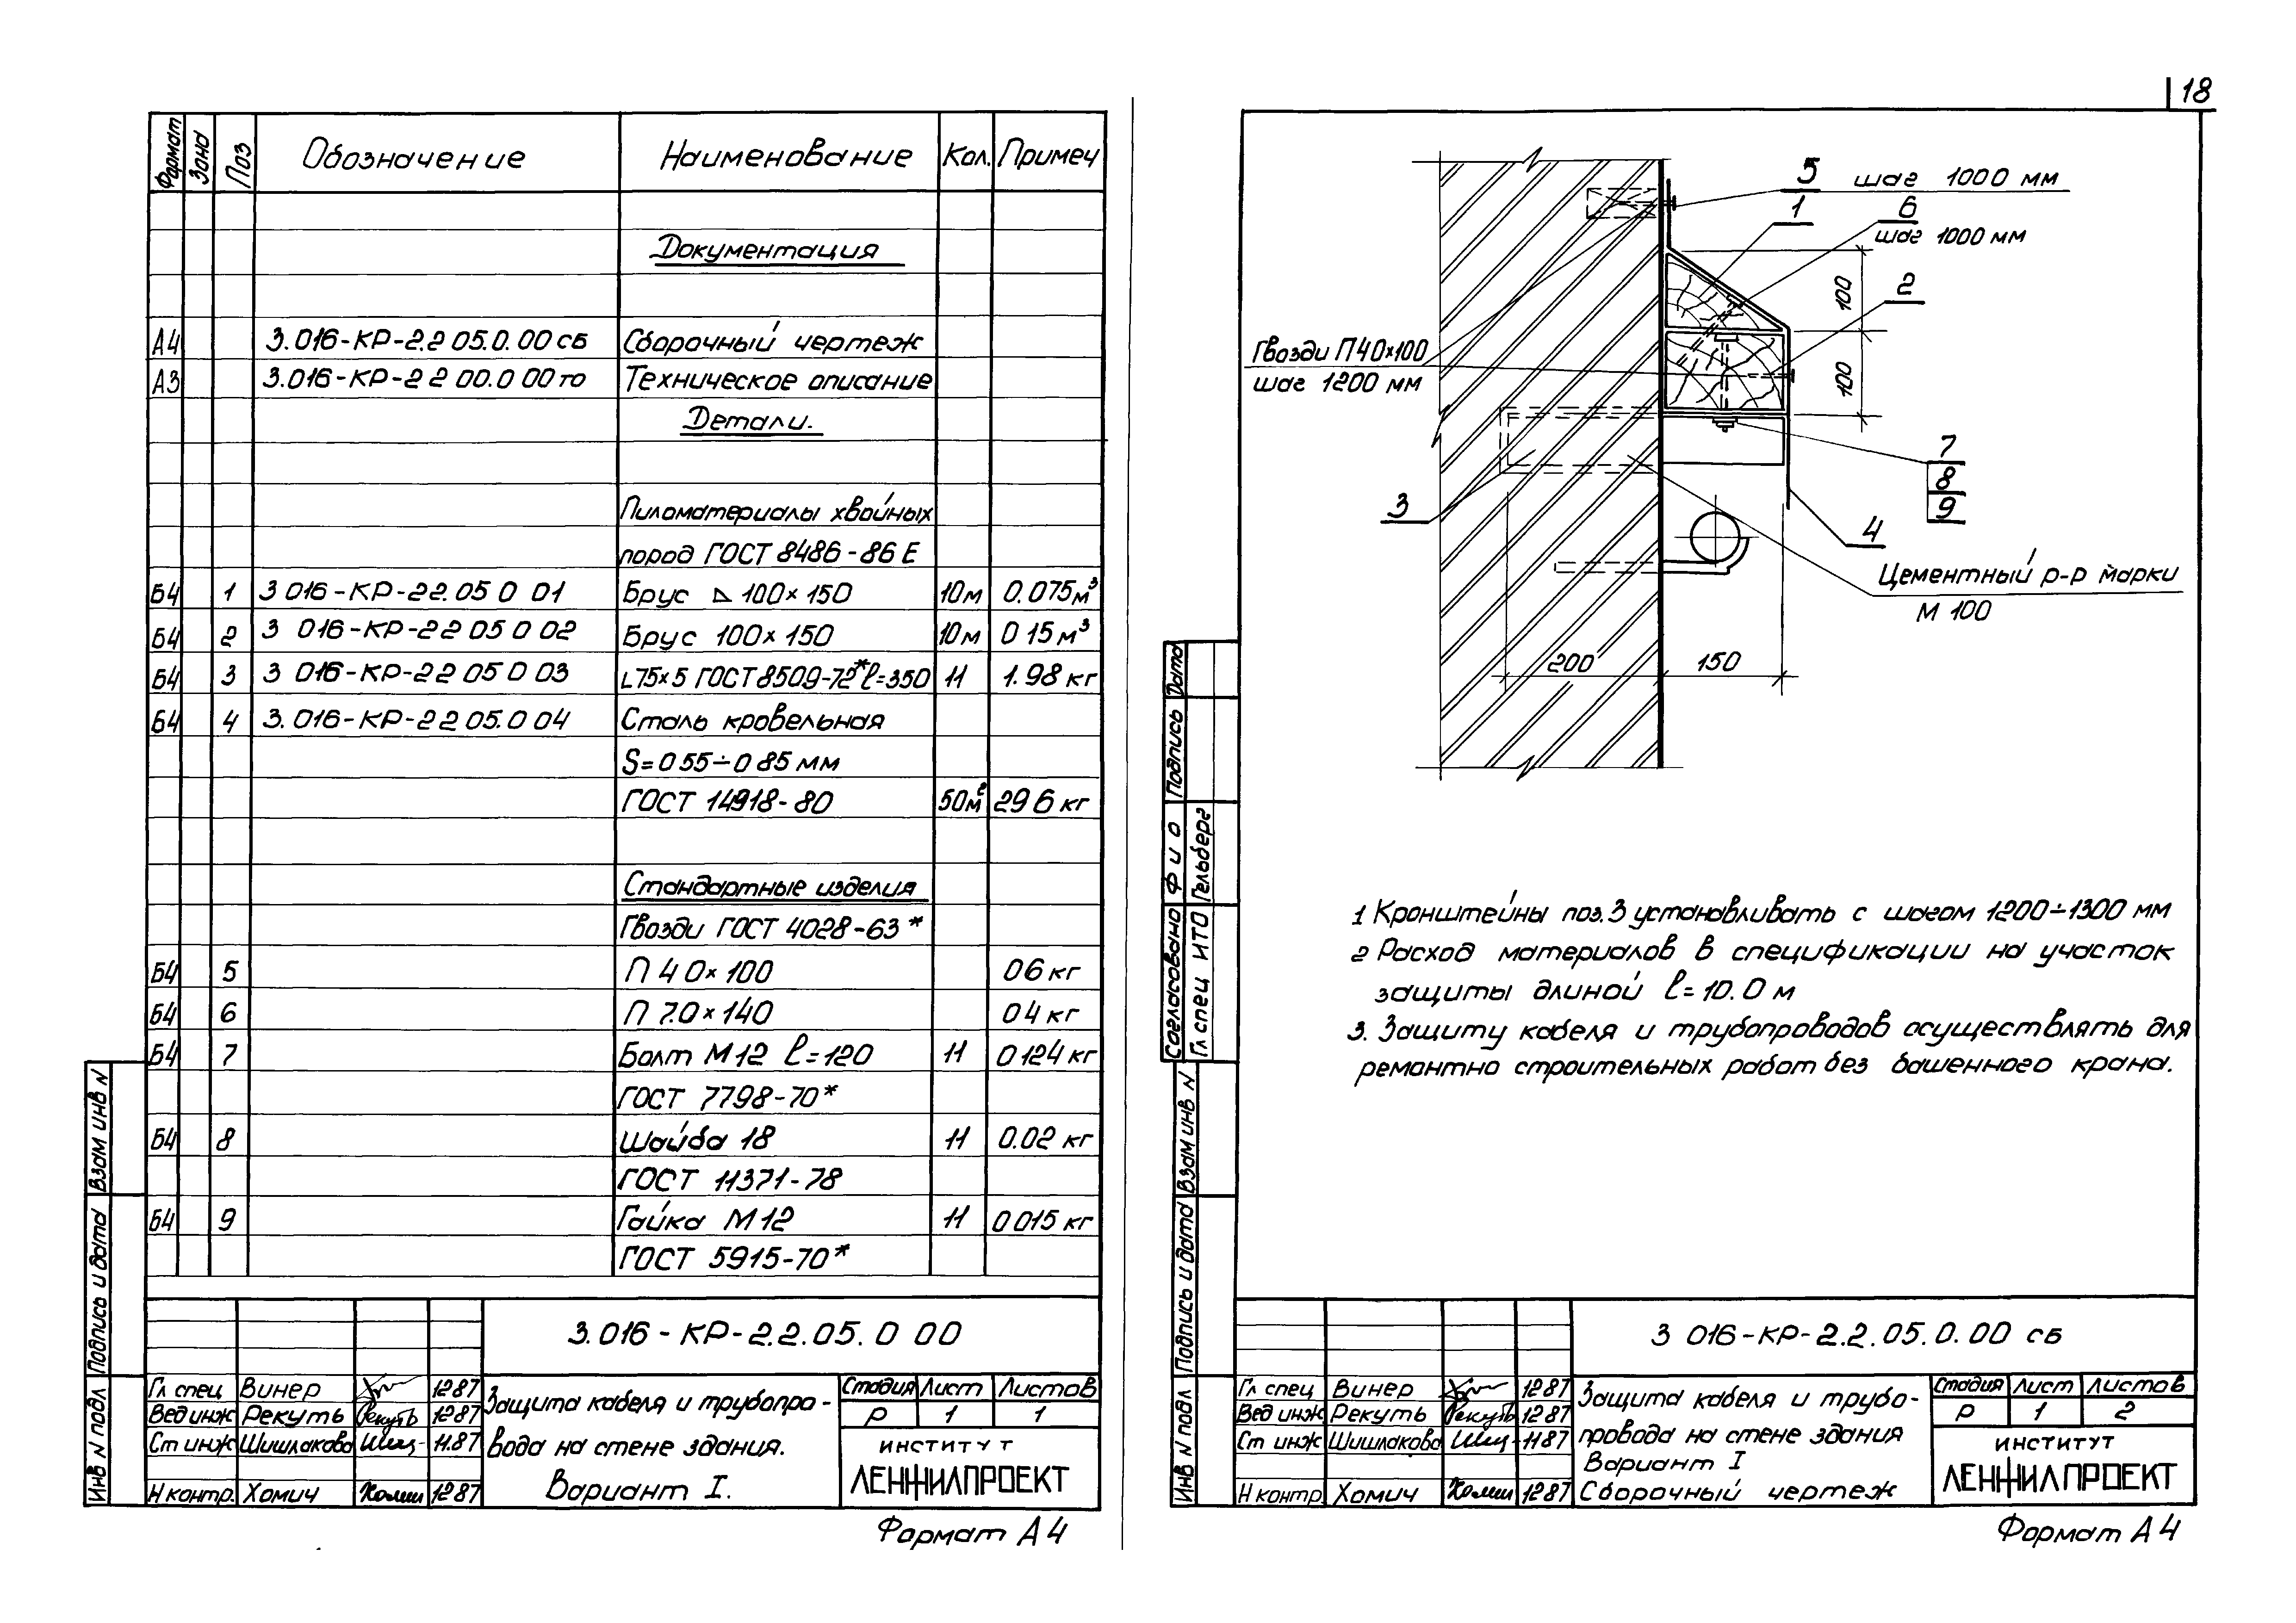 18
Формат Зона Поз Обозначение Наименование Кол. Примеч
Документация
А4 3.016-КР-2.2 05.0.00 сб Сборочный чертеж
А3 3.016-КР-2 2 00.0 00 то Техническое описание
Детали.
Пиломатериалы хвойных
пород ГОСТ 8486-86 Е
Б4 1 3 016-КР-22.05 0 01 Брус 100×150 10м 0.075м³
Б4 2 3 016-КР-22 05 0 02 Брус 100×150 10м 0 15 м³
Б4 3 3 016-КР-22 05 0 03 L75×5 ГОСТ 8509-72* ℓ=350 11 1.98 кг
Б4 4 3.016-КР-22 05.0 04 Сталь кровельная
S=0 55÷0 85 мм
ГОСТ 14918-80 50м² 29 6 кг
Стандартные изделия
Гвозди ГОСТ 4028-63*
Б4 5 П 4 0×100 0 6 кг
Б4 6 П 7.0×140 0 4 кг
Б4 7 Болт М12 ℓ=120 11 0 124 кг
ГОСТ 7798-70*
Б4 8 Шайба 18 11 0.02 кг
ГОСТ 11371-78
Б4 9 Гайка М12 11 0 015 кг
ГОСТ 5915-70*
3.016-КР-2.2.05.0 00
Гл спец Винер 12 87
Вед инж Рекуть Рекуть 12 87
Ст инж Шишлакова Шиш- 11.87
Н контр. Хомич Хомич 12 87
Защита кабеля и трубопро-
вода на стене здания.
Вариант I.
Стадия Лист Листов
Р 1 1
ИНСТИТУТ
ЛЕНЖИЛПРОЕКТ
Формат А4
Инв N подл Подпись и дата Взам инв N
5 шаг 1000 мм
1
6
шаг 1000 мм
2
100
100
Гвозди П40×100
шаг 1200 мм
7
8
9
3
4
Цементный р-р марки
М 100
200 150
1 Кронштейны поз.3 устанавливать с шагом 1200÷1300 мм
2 Расход материалов в спецификации на участок
защиты длиной ℓ=10.0 м
3. Защиту кабеля и трубопроводов осуществлять для
ремонтно строительных работ без башенного крана.
Согласовано Ф и о Подпись Дата
Гл спец ИТО Гельберг
Инв N подл Подпись и дата Взам инв N
3 016-КР-2.2.05.0.00 сб
Гл спец Винер 12 87
Вед инж Рекуть Рекуть 12 87
Ст инж Шишлакова Шиш- 11 87
Н контр Хомич Хомич 12 87
Защита кабеля и трубо-
провода на стене здания
Вариант I
Сборочный чертеж
Стадия Лист Листов
Р 1 2
ИНСТИТУТ
ЛЕНЖИЛПРОЕКТ
Формат А4